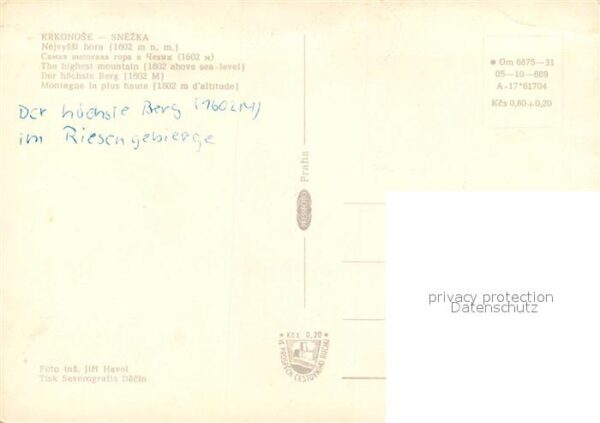 KRKONOŠE — SNĚŽKA
Nejvyšší hora (1602 m n. m.)
Самая высокая гора в Чехии (1602 м)
The highest mountain (1602 above sea-level)
Der höchste Berg (1602 M)
Montagne la plus haute (1602 m d'altitude)
Der höchste Berg (1602M)
im Riesengebierge
● Om 6875—31
05-10-669
A-17*61704
Kčs 0,60+0,20
Praha
Kčs 0,20
VE PROSPĚCH CESTOVNÍHO RUCHU
privacy protection
Datenschutz
Foto inž. Jiří Havel
Tisk Severografia Děčín